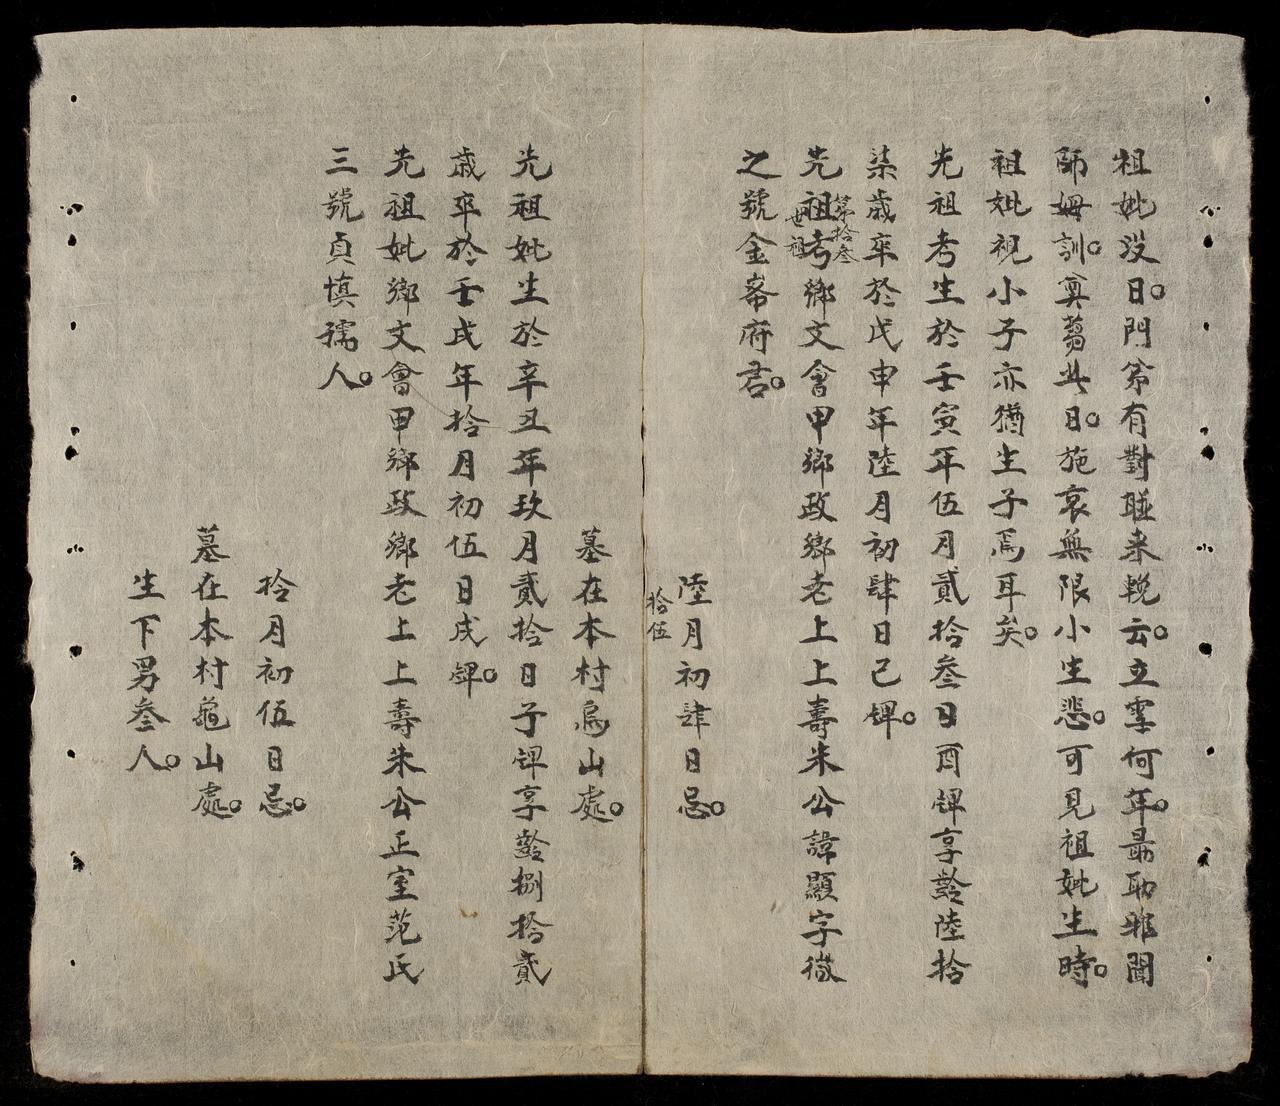 祖妣没日門㐱有對聯来輓云立雪何年最耻非聞
師姆訓奠蒭此日施哀無限小生悲可見祖妣生時
祖妣視小子亦猶生子焉耳矣
先祖考生於壬寅年伍月貳拾叁日酉牌享齡陸拾
柒歲卒於戊申年陸月初肆日己牌
第拾叁
世祖
先祖考鄉文會甲鄉政鄉老上上壽朱公諱顯字徽
之號金峯府君
陸月初肆日忌
拾伍
墓在本村烏山處
先祖妣生於辛丑年玖月貳拾日子牌享齡捌拾貳
歲卒於壬戌年拾月初伍日戌牌
先祖妣鄉文會甲鄉政鄉老上上壽朱公正室范氏
三號貞慎孺人
拾月初伍日忌
墓在本村龜山處
生下男叁人